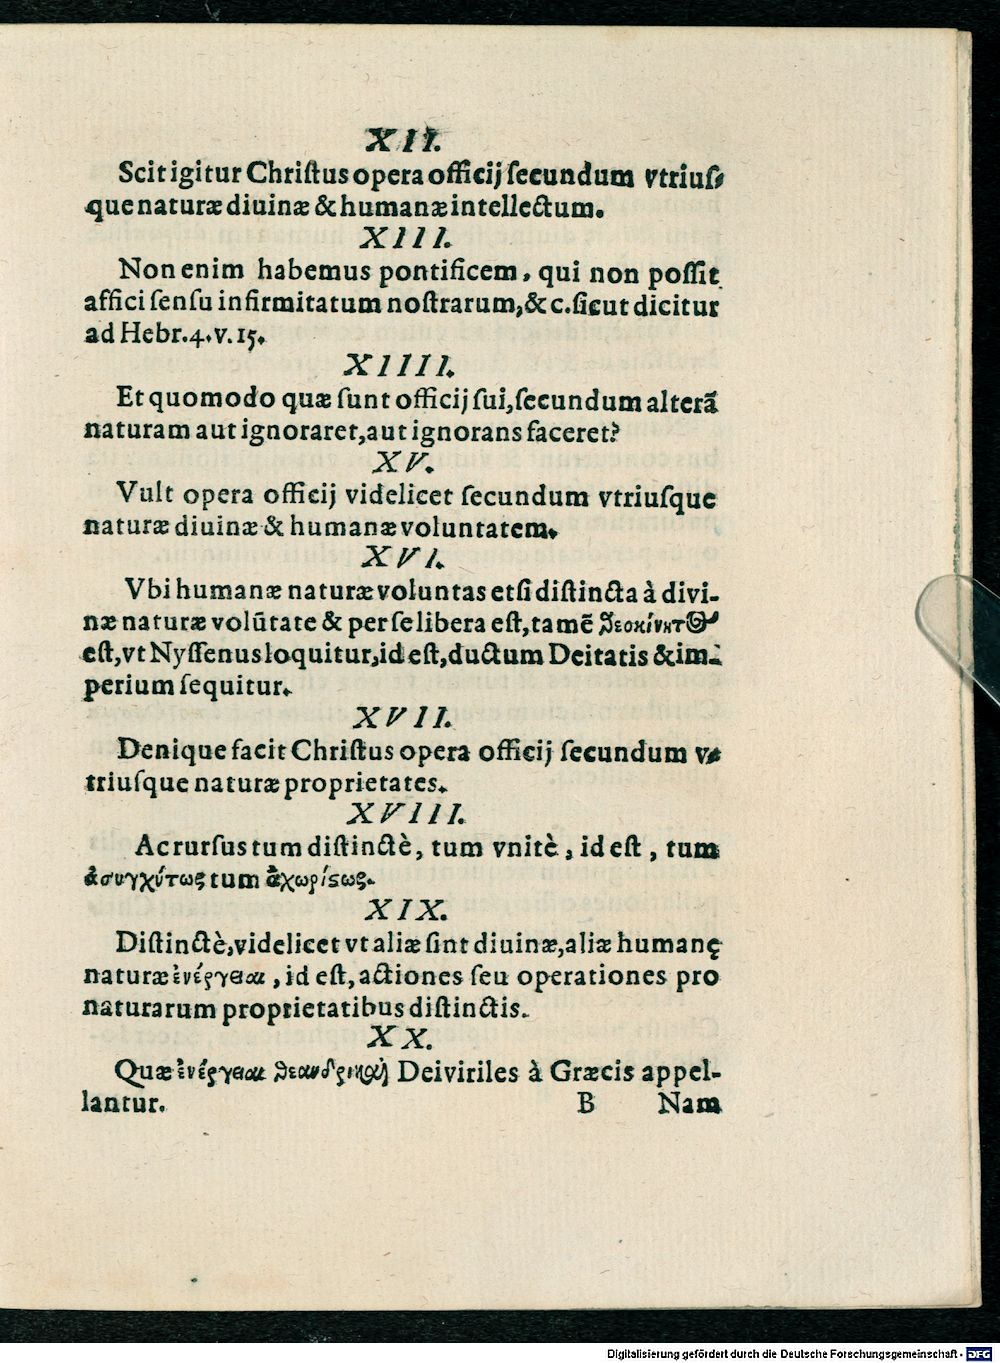 XII.
Scit igitur Chriſtus opera officij ſecundum vtriuſ-
que naturæ diuinæ & humanæ intellectum.
XIII.
Non enim habemus pontificem, qui non poſſit
affici ſenſu infirmitatum noſtrarum, &c. ſicut dicitur
ad Hebr. 4. v. 15.
XIIII.
Et quomodo quæ ſunt officij ſui, ſecundum alterā
naturam aut ignoraret, aut ignorans faceret?
XV.
Vult opera officij videlicet ſecundum vtriuſque
naturæ diuinæ & humanæ voluntatem.
XVI.
Vbi humanæ naturæ voluntas etſi diſtincta à divi-
næ naturæ volūtate & per ſe libera eſt, tamē θεοκίνητος
eſt, vt Nyſſenus loquitur, id eſt, ductum Deitatis & im-
perium ſequitur.
XVII.
Denique facit Chriſtus opera officij ſecundum v-
triuſque naturæ proprietates.
XVIII.
Ac rurſus tum diſtinctè, tum vnitè, id eſt, tum
ἀσυγχύτως tum ἀχωρίςως.
XIX.
Diſtinctè, videlicet vt aliæ ſint diuinæ, aliæ humanę
naturæ ἐνέργειαι, id eſt, actiones ſeu operationes pro
naturarum proprietatibus diſtinctis.
XX.
Quæ ἐνέργειαι θεανδρικαὶ Deiviriles à Græcis appel-
lantur. B Nam
Digitalisierung gefördert durch die Deutsche Forschungsgemeinschaft - DFG